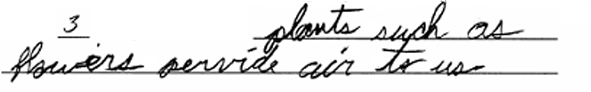 3 plants such as
flowers pervide air to us